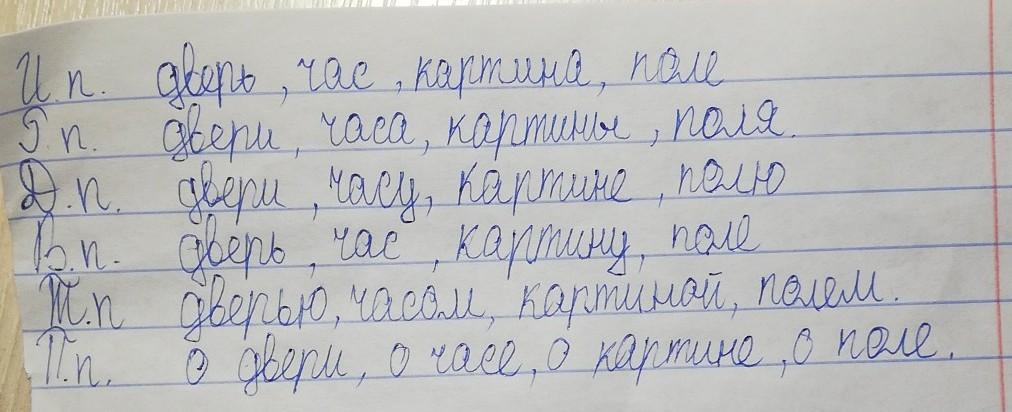 И.п. дверь, час, картина, поле
Р.п. двери, часа, картины, поля.
Д.п. двери, часу, картине, полю
В.п. дверь, час, картину, поле
Т.п дверью, часом, картиной, полем.
П.п. о двери, о часе, о картине, о поле.